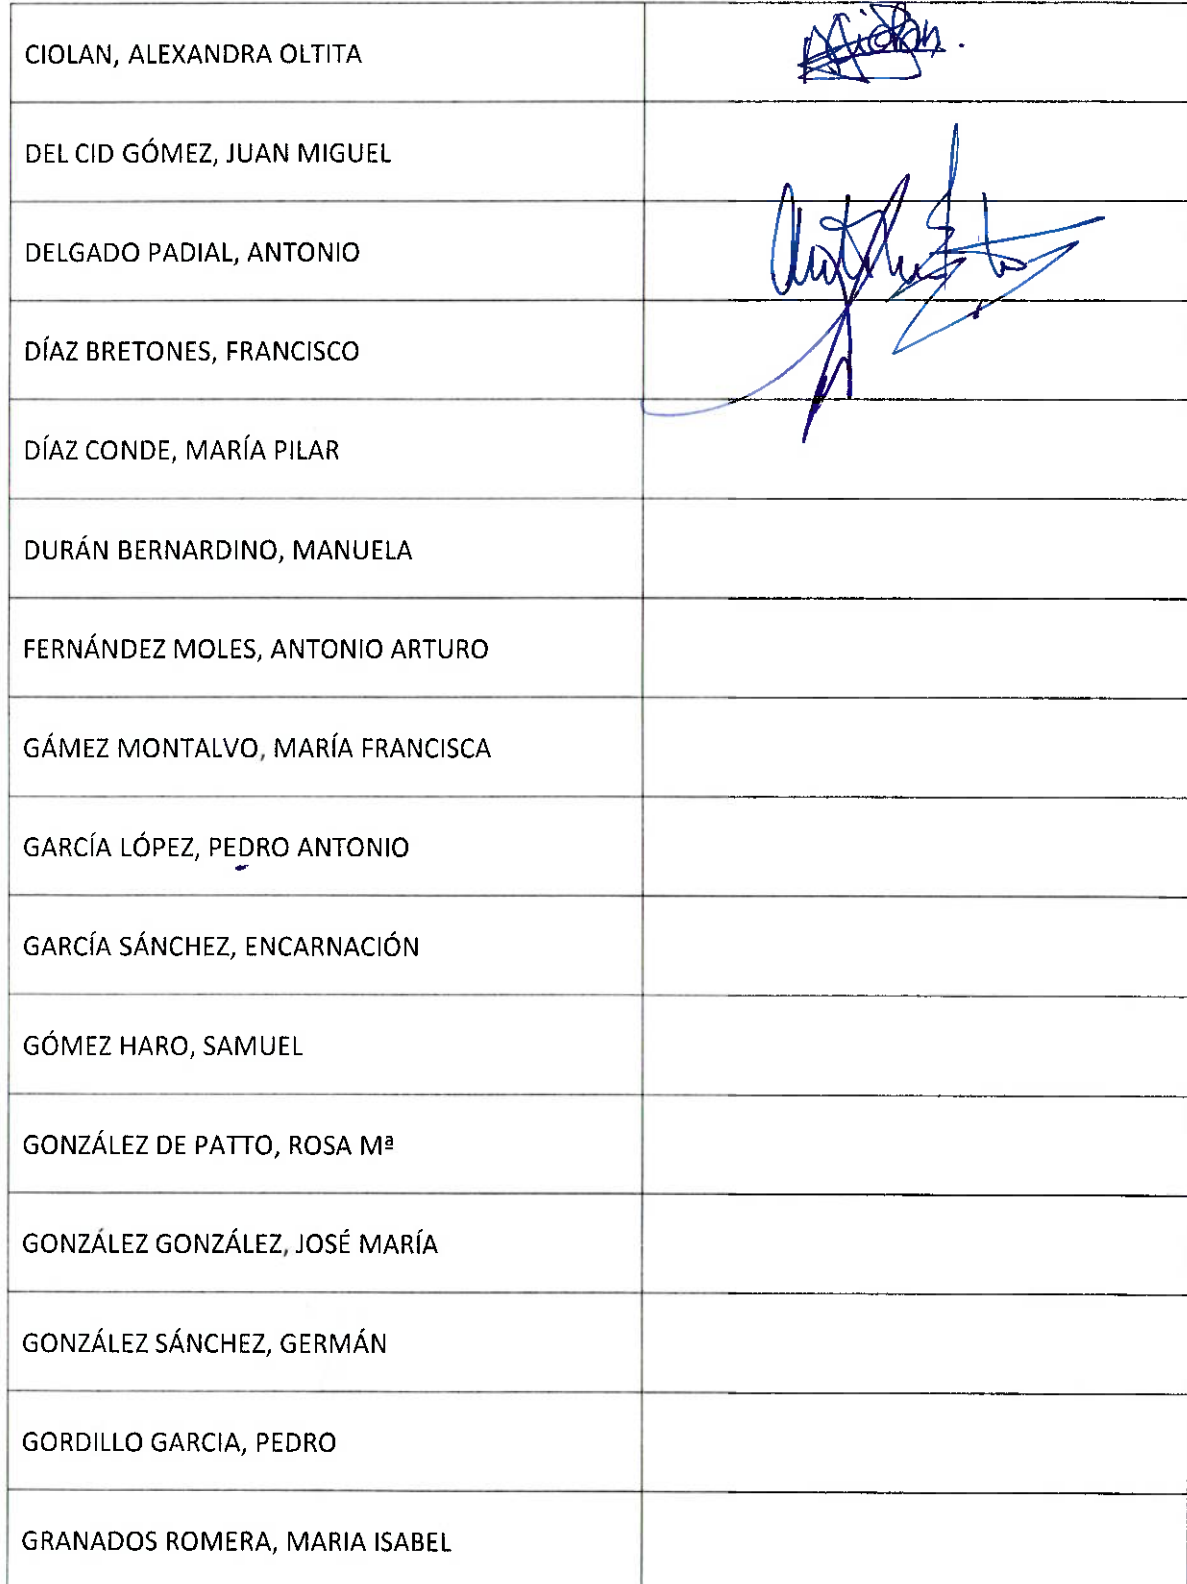 CIOLAN, ALEXANDRA OLTITA
DEL CID GÓMEZ, JUAN MIGUEL
DELGADO PADIAL, ANTONIO
DÍAZ BRETONES, FRANCISCO
DÍAZ CONDE, MARÍA PILAR
DURÁN BERNARDINO, MANUELA
FERNÁNDEZ MOLES, ANTONIO ARTURO
GÁMEZ MONTALVO, MARÍA FRANCISCA
GARCÍA LÓPEZ, PEDRO ANTONIO
GARCÍA SÁNCHEZ, ENCARNACIÓN
GÓMEZ HARO, SAMUEL
GONZÁLEZ DE PATTO, ROSA Mª
GONZÁLEZ GONZÁLEZ, JOSÉ MARÍA
GONZÁLEZ SÁNCHEZ, GERMÁN
GORDILLO GARCIA, PEDRO
GRANADOS ROMERA, MARIA ISABEL